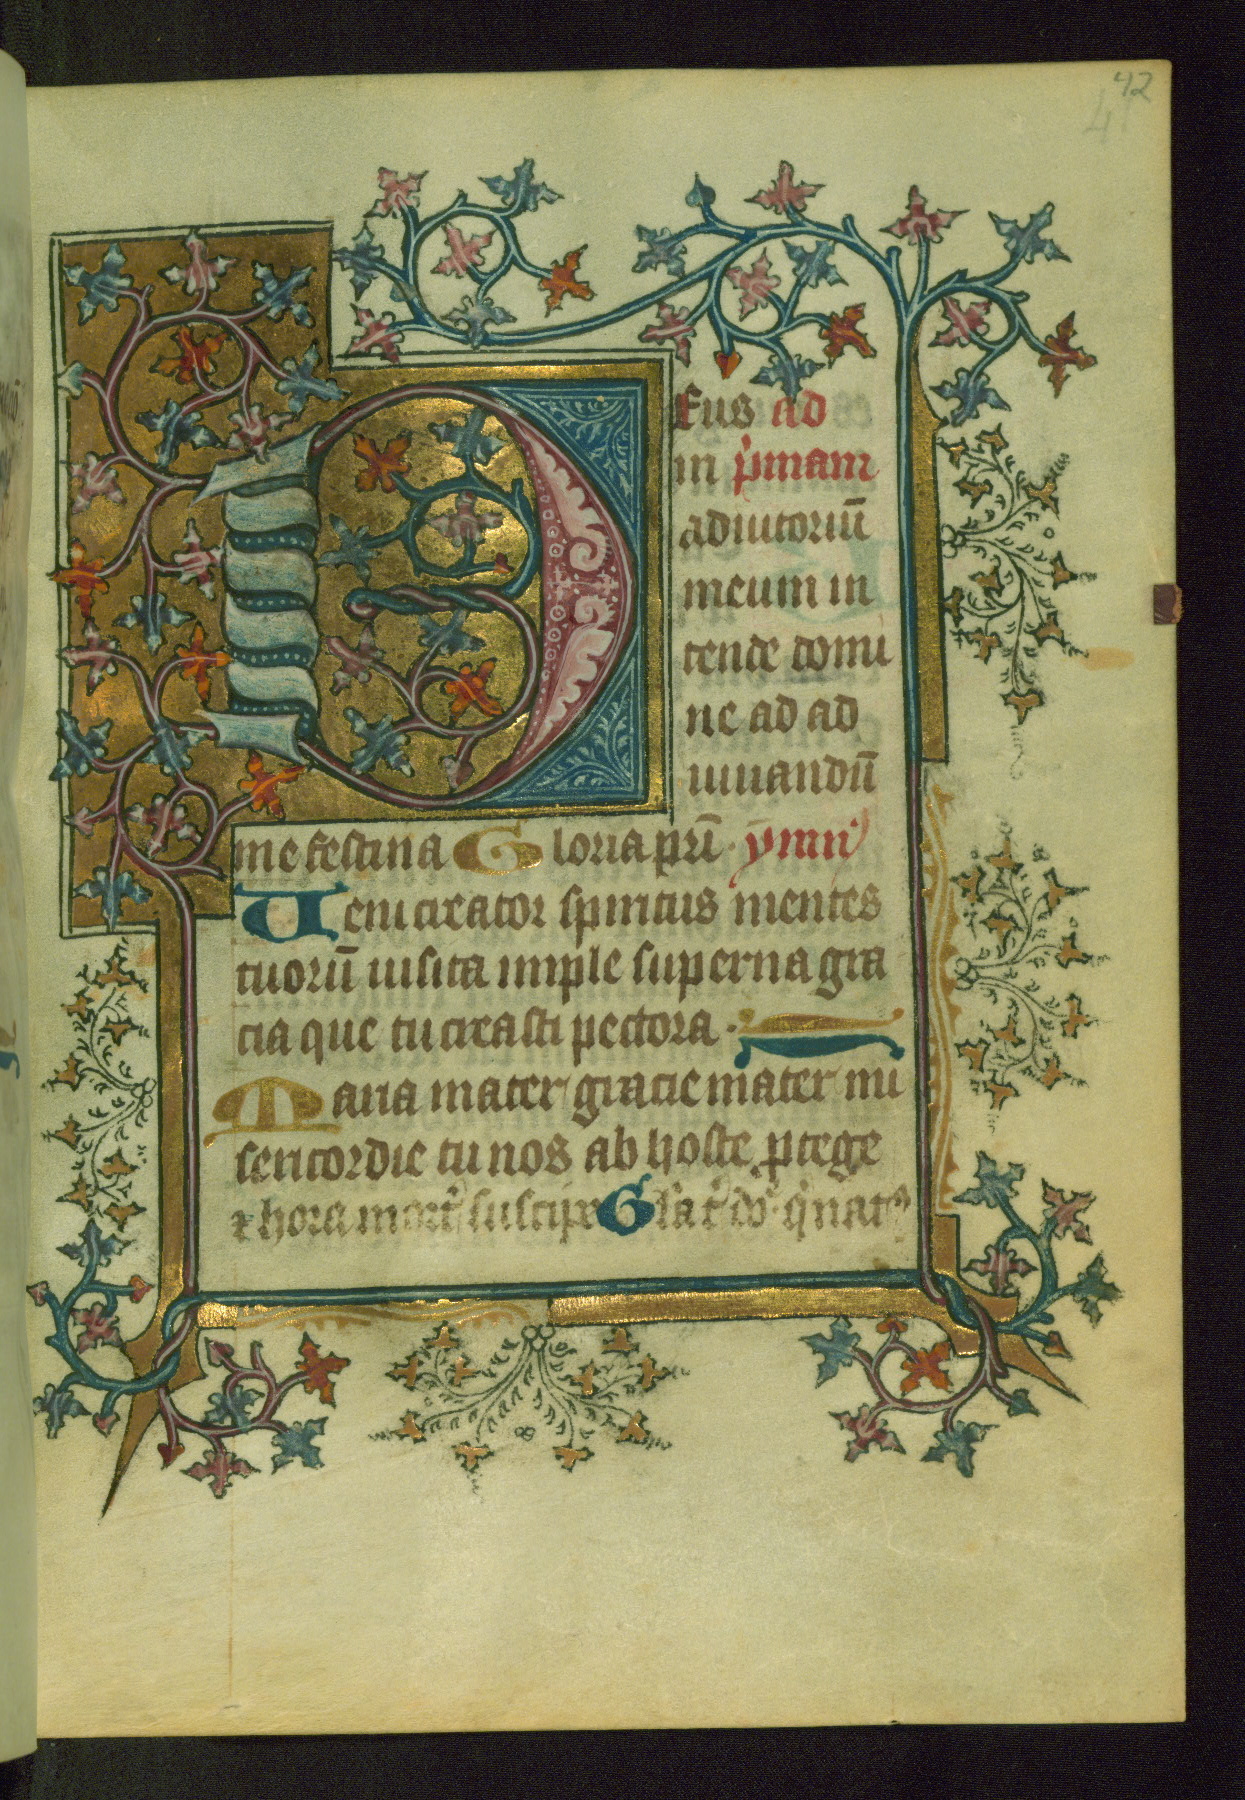 42
41
Deus ad
in p̕mam
adiutoriū
meum in
tende domi
ne ad ad
iuuandū
me festina Gloria pr̄i · ẏmn᷒
Ueni creator spiritus mentes
tuorū uisita imple superna gra
cia que tu creasti pectora ·
Maria mater gracie mater mi
sericordie tu nos ab hoste ꝓtege
⁊ hora mort̕ suscipe Gl̕a t̕ do᷒ q̕ nat᷒